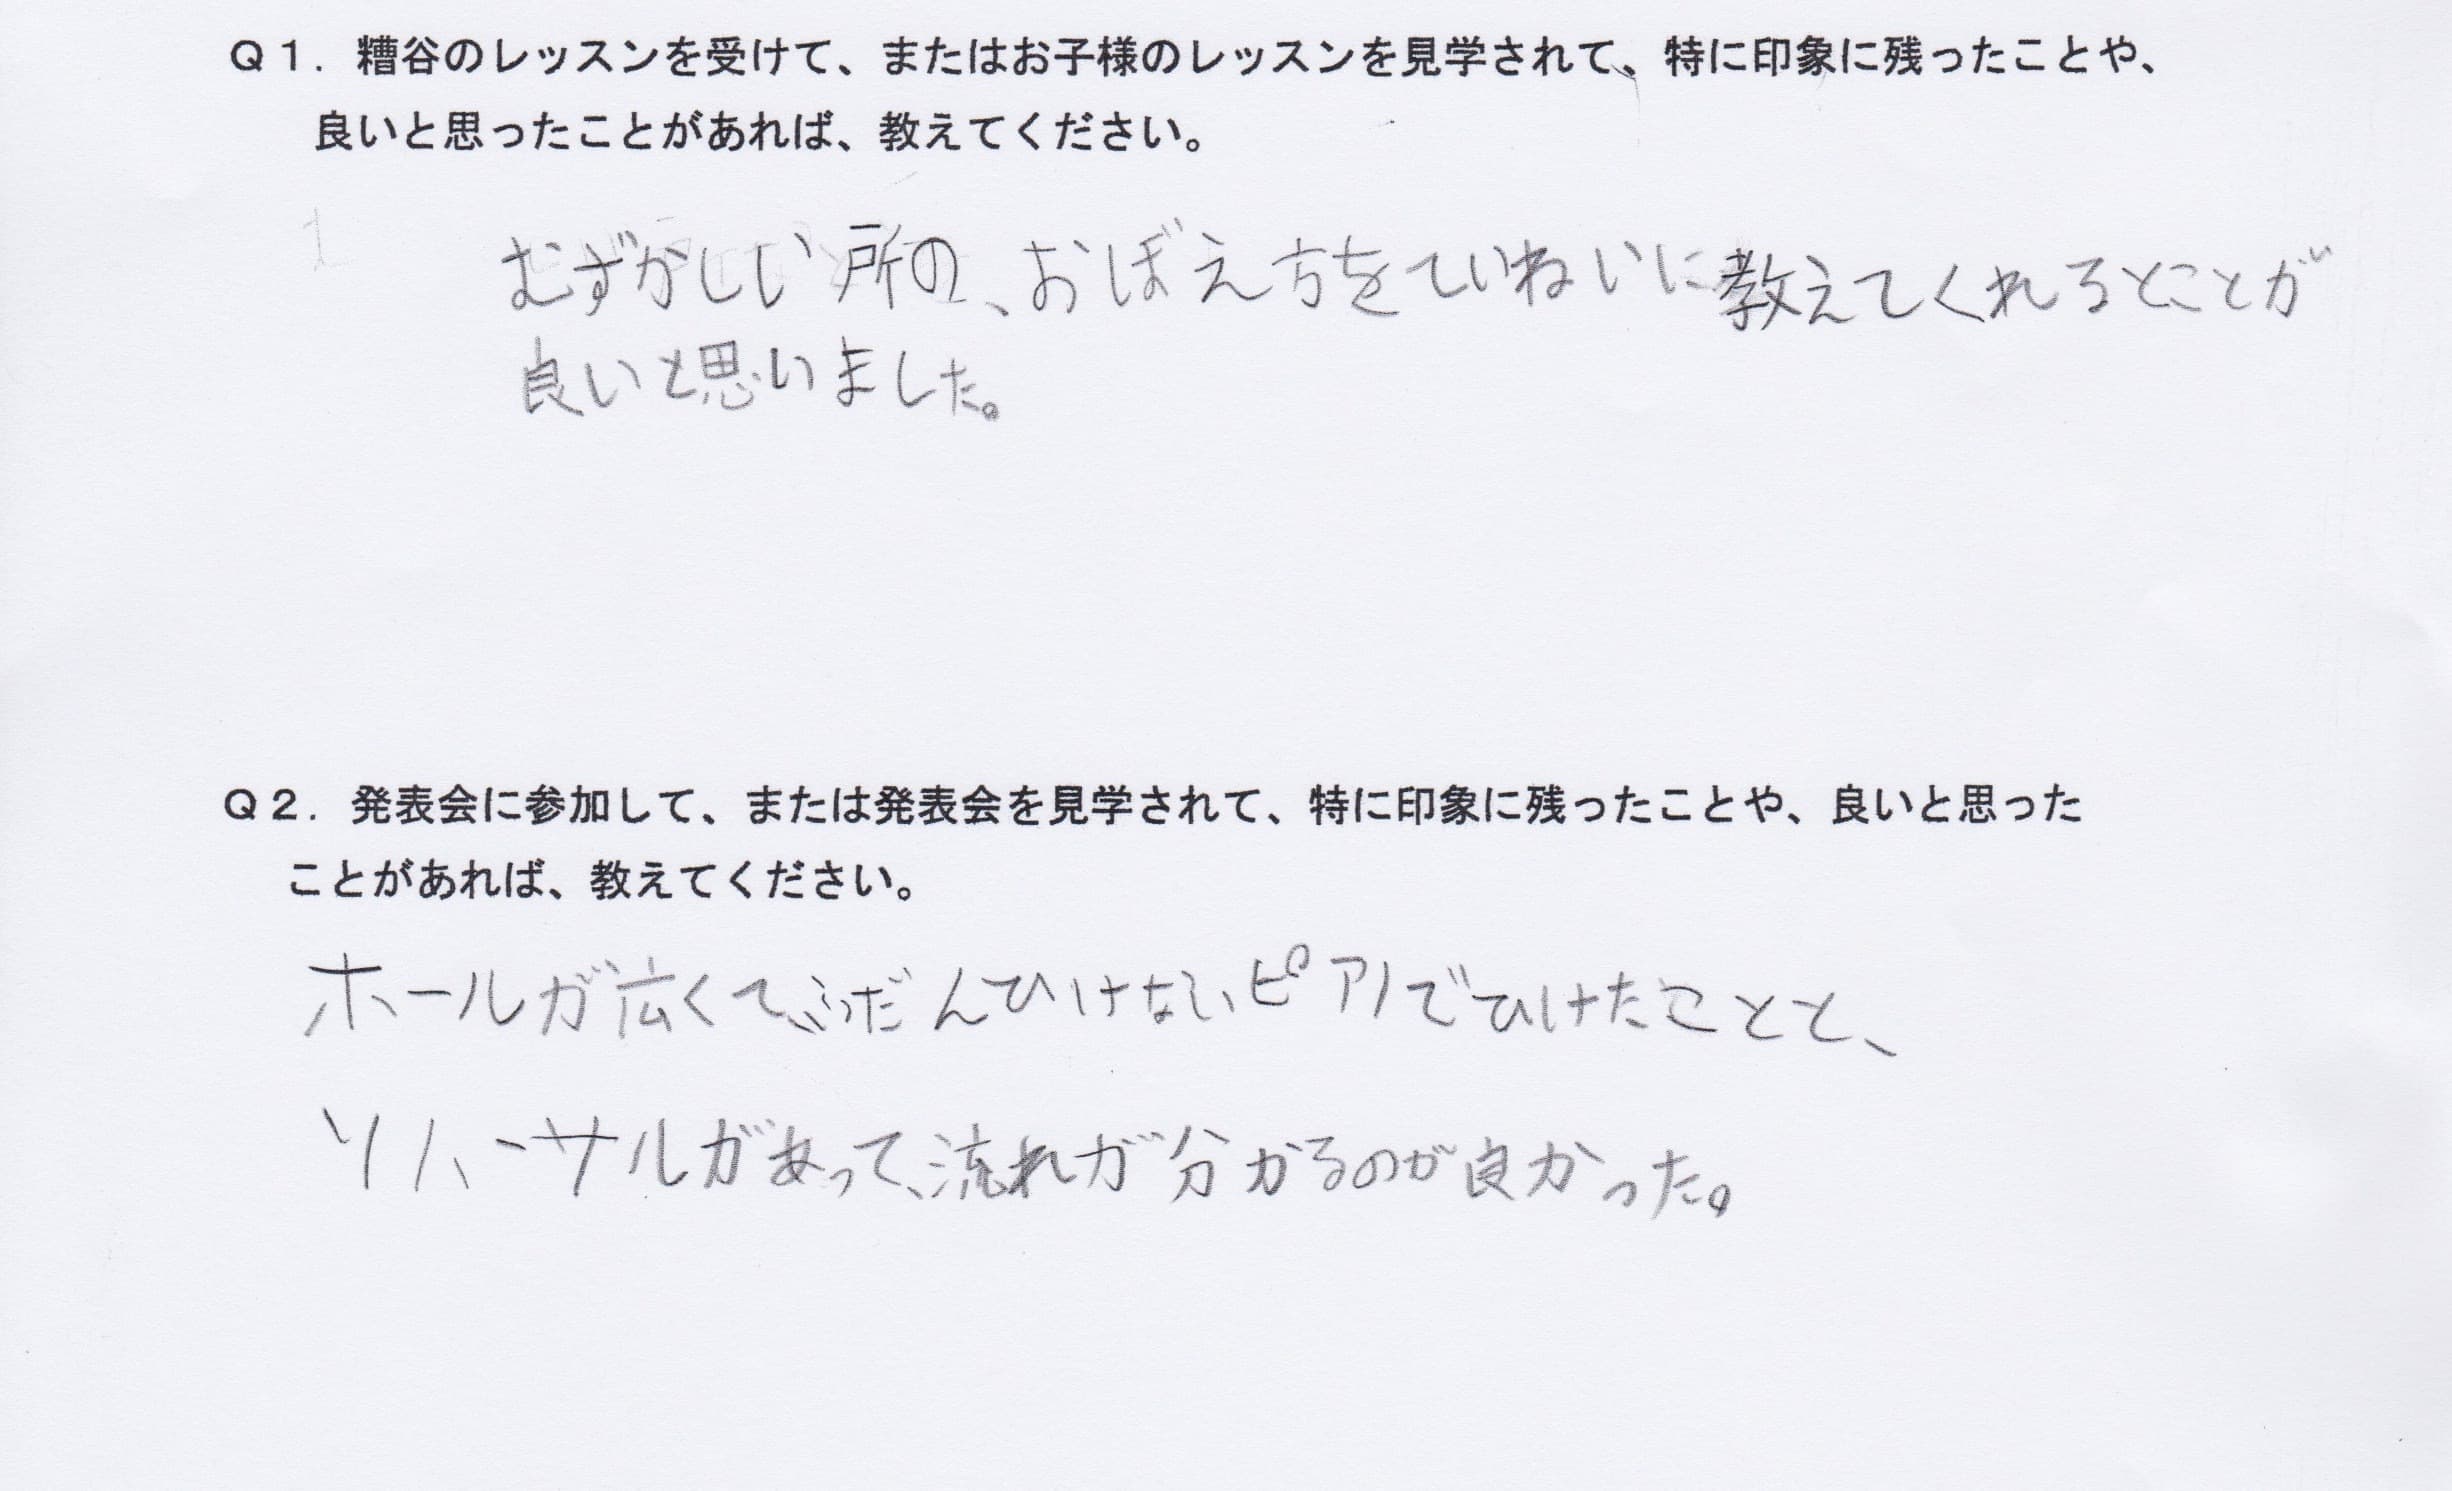 Q1. 糟谷のレッスンを受けて、またはお子様のレッスンを見学されて、特に印象に残ったことや、
良いと思ったことがあれば、教えてください。
むずかしい所の、おぼえ方をていねいに教えてくれるとことが
良いと思いました。
Q2. 発表会に参加して、または発表会を見学されて、特に印象に残ったことや、良いと思った
ことがあれば、教えてください。
ホールが広くて、ふだんひけないピアノでひけたことと、
リハーサルがあって、流れが分かるのが良かった。